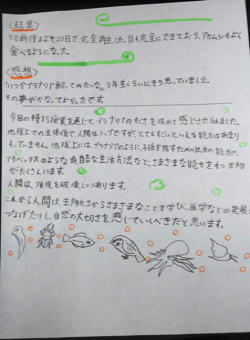 〈結果〉
切断後およそ25日で完全再生した。目も完全にできており、アカムシもよく
食べるようになった。
〈感想〉
いつかプラナリア飼ってみたいな。3年生くらいにそう思っていました。
その夢がかなってよかったです。
今回の特別授業を通して、プラナリアのすごさを改めて感じさせられました。
地球上での主体俊で人間はトップですが、とてもすごいといえる能力は
もっていません。地球上には、プラナリアのように、子孫を残すための独自の能力や、
のような奇酵的な生活方法など、さまざまな能力をもつ生物
がたくさんいます。
人間は、環境を破壊しつづけます。
これから人間は、生物たちからさまざまなことを学び、医学などの発展に
つなげたりし、自然の大切さを感じていくべきだと思います。